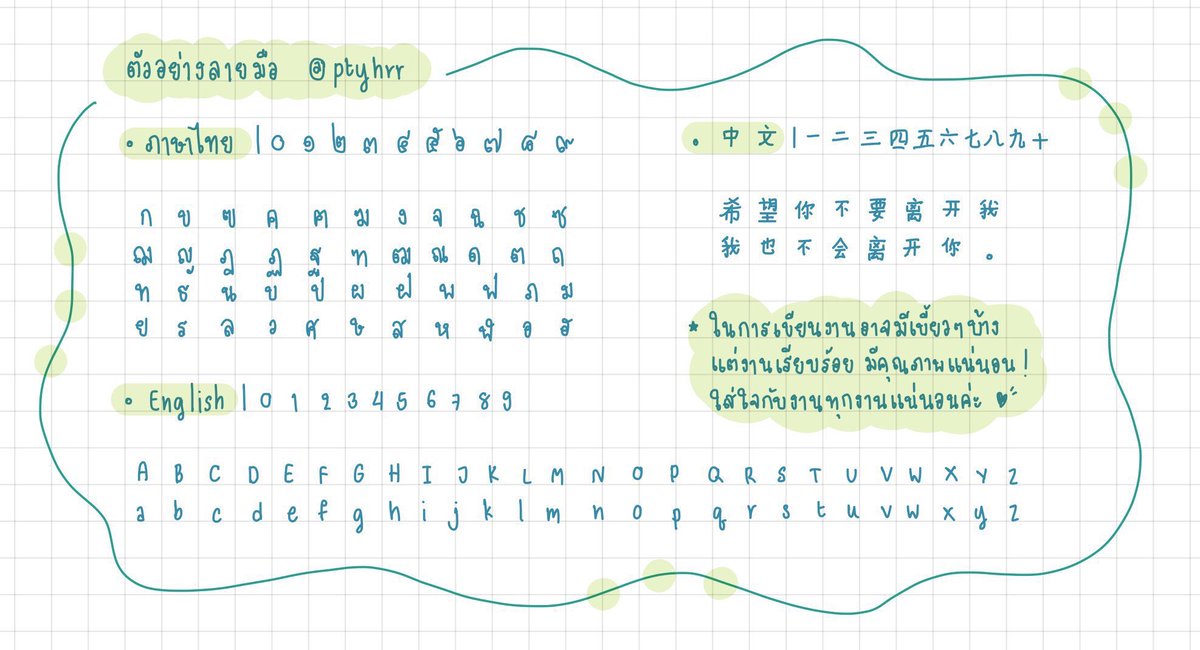 ตัวอย่างลายมือ @ptyhrr
• ภาษาไทย | ๐ ๑ ๒ ๓ ๔ ๕ ๖ ๗ ๘ ๙
ก ข ฃ ค ฅ ฆ ง จ ฉ ช ซ
ฌ ญ ฎ ฏ ฐ ฑ ฒ ณ ด ต ถ
ท ธ น บ ป ผ ฝ พ ฟ ภ ม
ย ร ล ว ศ ษ ส ห ฬ อ ฮ
• English | 0 1 2 3 4 5 6 7 8 9
A B C D E F G H I J K L M N O P Q R S T U V W X Y Z
a b c d e f g h i j k l m n o p q r s t u v w x y z
• 中文 | 一二三四五六七八九十
希望你不要离开我
我也不会离开你。
* ในการเขียนงานอาจมีเขี้ยวๆบ้าง
แต่งานเรียบร้อย มีคุณภาพแน่นอน!
ใส่ใจกับงานทุกงานแน่นอนค่ะ ♥